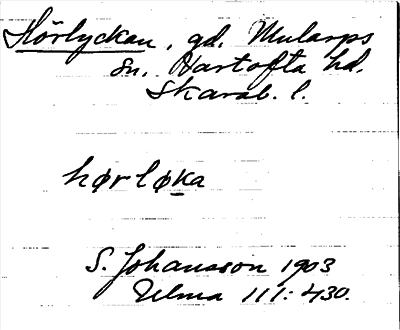 Hörlyckan, gd. Mularps
sn. Vartofta hd.
Skarab. l.
hørløka
S. Johansson 1903
Ulma 111:430.